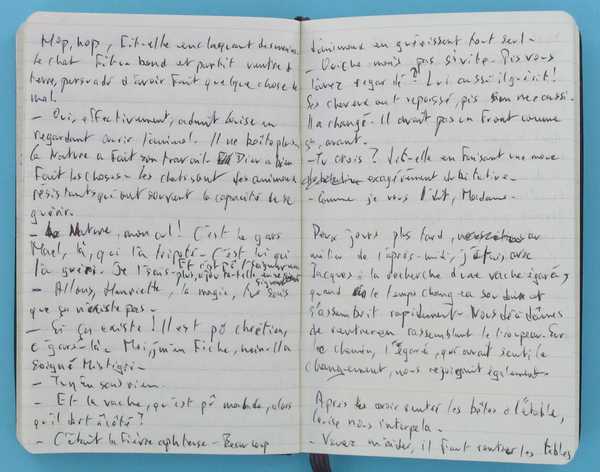 Hop, hop, fit-elle en claquant des mains.
le chat fit un bond et partit ventre à
terre, persuadé d'avoir fait quelque chose de
mal.
— Oui, effectivement, admit Louise en
regardant courir l'animal. Il ne boîte plus,
la Nature a fait son travail. Dieu a bien
fait les choses – les chats sont des animaux
résistants qui ont souvent la capacité de se
guérir.
— la Nature, mon cul ! C'est le gars
Mael, là, qui l'a tripoté – C'est lui qui
l'a guéri. Je l'sais
— Allons, Henriette, la magie, tu sais
que ça n'existe pas –
— Si ça existe ! Il est pô chrétien,
c'gars-là. Moi, j'm'en fiche, hein. Il a
soigné Mistigri –
— Tu n'en sais rien.
— Et la vache, qu'est pô malade, alors
qu'il dort à côté ?
— C'était la fièvre aphteuse – Beaucoup
d'animaux en guérissent tout seul –
— Ouiche mais pas si vite. Pis vous
l'avez regardé ? Lui aussi il guérit !
Ses cheveux ont repoussé, pis son nez aussi.
Il a changé. Il avait pas un front comme
ça, avant.
— Tu crois ? dit-elle en faisant une moue
exagérément dubitative –
— Comme je vous l'dit, Madame.
Deux jours plus tard, au
milieu de l'après-midi, j'étais, avec
Jacques à la recherche d'une vache égarée,
quand le temps changea soudain et
s'assombrit rapidement – Nous décidâmes
de rentrer en rassemblant le troupeau. Sur
le chemin, l'égarée, qui avait senti le
changement, nous rejoignit également –
Après avoir rentré les bêtes à l'étable,
Louise nous interpela –
— Venez m'aider, il faut rentrer les tables